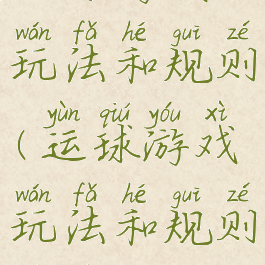 wán fǎ hé guī zé
玩法和规则
yùn qiú yóu xì
(运球游戏
wán fǎ hé guī zé
玩法和规则